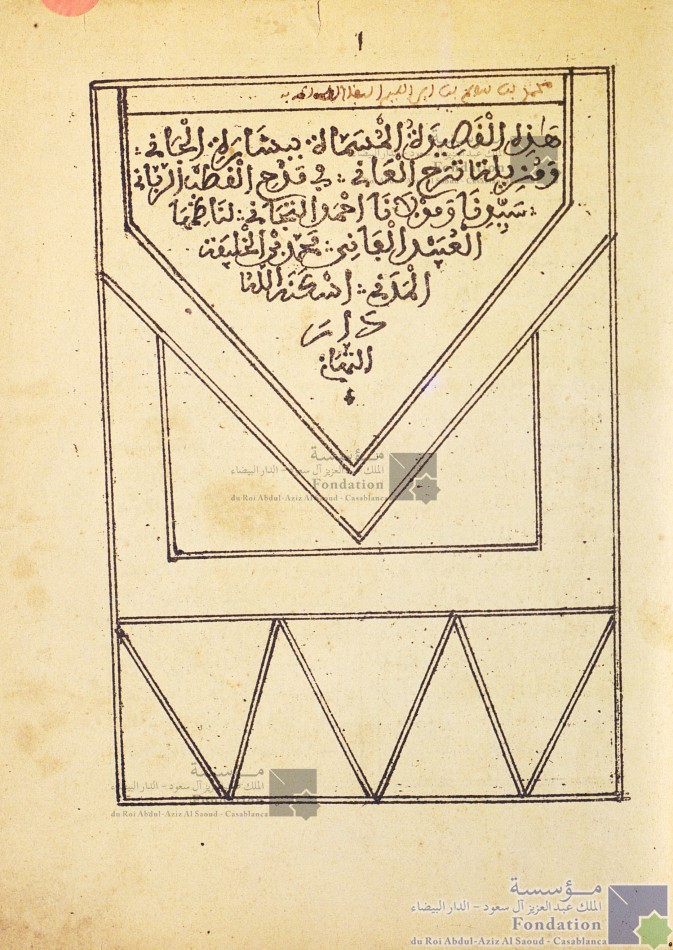 ١
محمد بن
هذه القصيدة المسماة ببشارة الجاني
ومزيلة ترح العاني في مدح القطب الرباني
سيدنا ومولانا احمد التجاني لناظمها
العبد الفاني محمد بن الخليفة
المدني اسكنه الله
دار
التهاني
مؤسسة
الملك عبد العزيز آل سعود - الدار البيضاء
Fondation
du Roi Abdul-Aziz Al Saoud - Casablanca
مؤسسة
الملك عبد العزيز آل سعود - الدار البيضاء
Fondation
du Roi Abdul-Aziz Al Saoud - Casablanca
مؤسسة
الملك عبد العزيز آل سعود - الدار البيضاء
Fondation
du Roi Abdul-Aziz Al Saoud - Casablanca